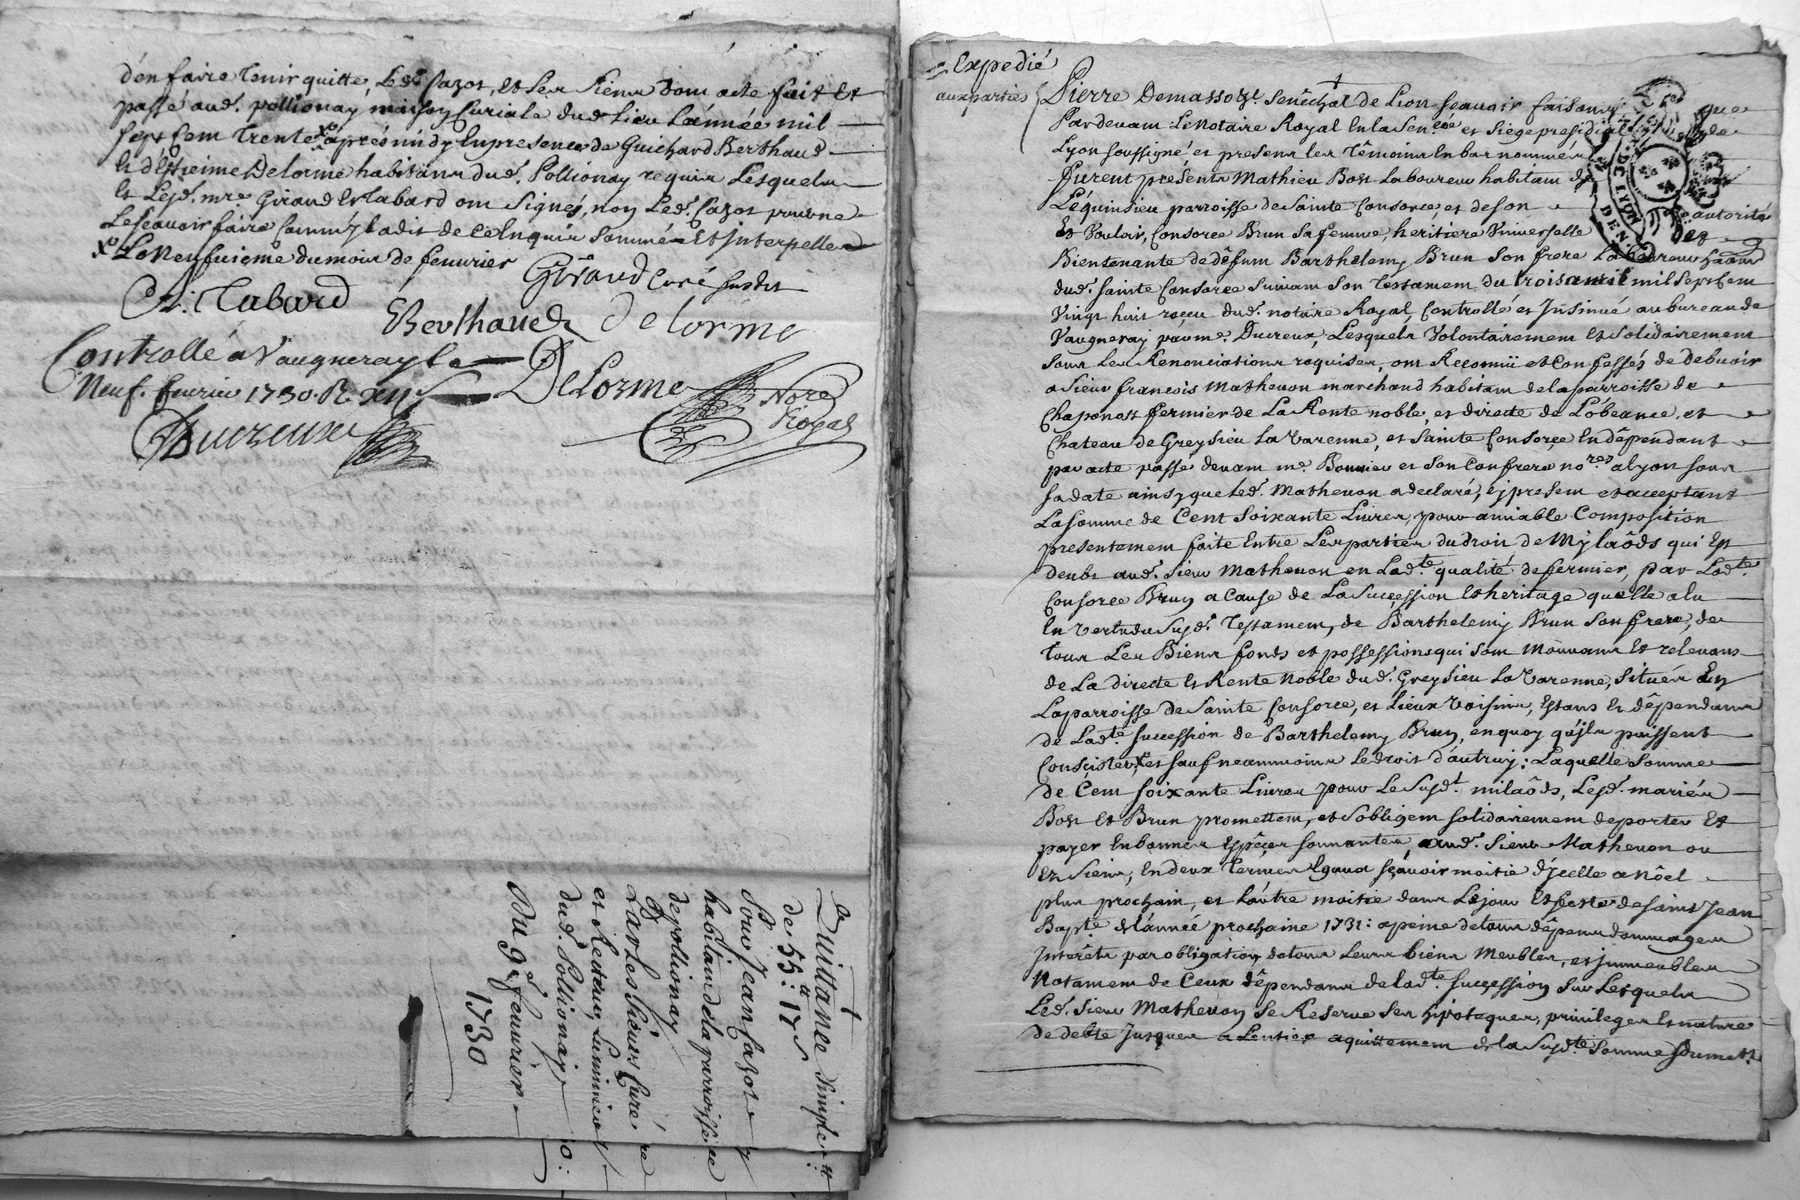 d'en faire tenir quitte, Led. Cazot, et les siens dont acte fait et
passé aud. pollionay maison Curiale dud. Lieu L'année mil
sept cent trente x aprés midy En presence de Guichard Berthaud
et d'Estieinne Delorme habitans dud. Pollionay requis Lesquels
et Lesd. mre Giraud et Tabard ont signés, non Led. Cazot pour ne
Le scavoir faire comm'il a dit de ce Enquis sommé et Interpellé
x Le Neufuieme du mois de feuvrier
Giraud Curé susdit
Tabard
Berthaud Delorme
Controllé a Vaugneray le
Neuf. feuvrier 1730. R. xij s
Delorme Nore Royal
Ducreux
Quittance simple
de 55: 17 s
Pour Jean Cazot
habitant de la parroisse
de pollionay
Par les sieurs Curé
et Recteur Luminier
dud. Pollionay
Du 9e feuvrier
1730
Expedié
aux parties
Pierre Demasso Sr. Senêchal de Lion scavoir faisons que
Pardevant Le Notaire Royal En la Sencée et siége presidial de
Lyon soussigné et presens les têmoins En bas nommés
furent présents Mathieu Bost Laboureur habitant de
Léquinsieu parroisse de Sainte Consorce, et de son autorité
et Vouloir, Consorce Brun sa femme, heritiere Universelle
Bientenante de défunt Barthelemy Brun son frere Laboureur
dud. sainte Consorce suivant son Testament du trois avril mil sept cent
Vingt huit reçeu dud. notaire Royal Controllé et Insinué au bureau de
Vaugneray par me. Ducreux, Lesquels Volontairement et solidairement
sous Les Renonciations requises, ont Reconnü et Confessés de debuoir
a sieur françois Mathevon marchand habitant de la parroisse de
Chaponost fermier de La Rente noble, et directe de L'obeance, et
Chateau de Greysieu La Varenne, et Sainte Consorçe En dépendant
par acte passé devant me. Bonnier et son Confrere nores a lyon sous
sa date ainsy que Led. Mathevon a declaré, cy present et acceptant
La somme de Cent soixante Livres, pour amiable Composition
presentement faite Entre Les parties du droit de Mylaôds qui Est
deubt aud. sieur Mathevon en Ladte. qualité de fermier, par Ladte.
Consorce Brun a Cause de La Succession et heritage quelle a eu
En Vertu du Susd. Testament, de Barthelemy Brun son frere, de
tous Les Biens fonds et possessions qui sont Mouvans et relevans
de La directe et Rente Noble dud. Greysieu La Varenne, situés En
La parroisse de Sainte Consorce, et Lieux Voisins, Estans et dêpendans
de Ladte. succession de Barthelemy Brun, en quoy qu'ils puissent
Consister, x et sauf neanmoins le droit d'autruy; Laquelle somme
de Cent soixante Livres pour Le Susdt. milaôds, Lesd. mariés
Bost et Brun promettent, et s'obligent solidairement de porter et
payer En bonnes Espêçes sonnantes, aud. Sieur Mathevon ou
Es siens, En deux termes Egaux sçavoir moitié d'Ycelle a Nôel
plus prochain, et L'autre moitié dans Le jour et feste de saint Jean
Bapte. de L'année prochaine 1731: a peine de tous dêpens dommages
Interêts par obligation de tous Leurs biens Meubles, et Immeubles
Notament de Ceux dêpendans de ladte. succession sur Lesquels
Led. sieur Mathevon se Reserve ses hipoteques, privileges et nature
de debte Jusques a L'entier aquittement de la Susdte. Somme